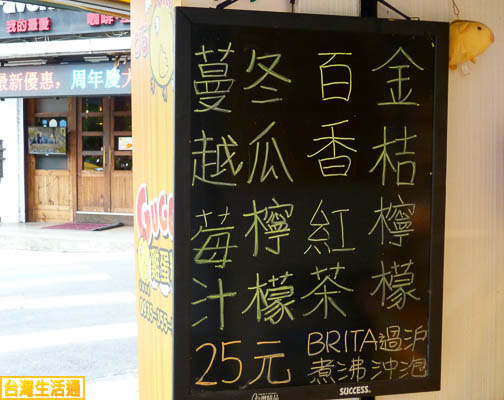 我的最愛
咖啡
最新優惠，周年慶大
金桔檸檬
百香紅茶
冬瓜檸檬
蔓越莓汁
25元
BRITA過沪
煮沸沖泡
SUCCESS.
台灣生活通